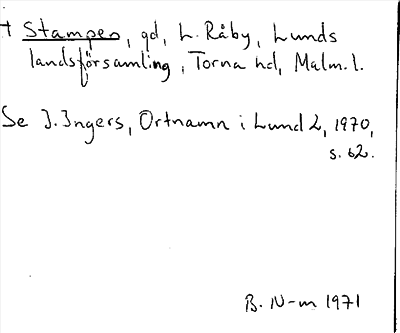 † Stampen, gd, L. Råby, Lunds
landsförsamling, Torna hd, Malm. l.
Se I. Ingers, Ortnamn i Lund 2, 1970,
s. 62.
B. N-m 1971